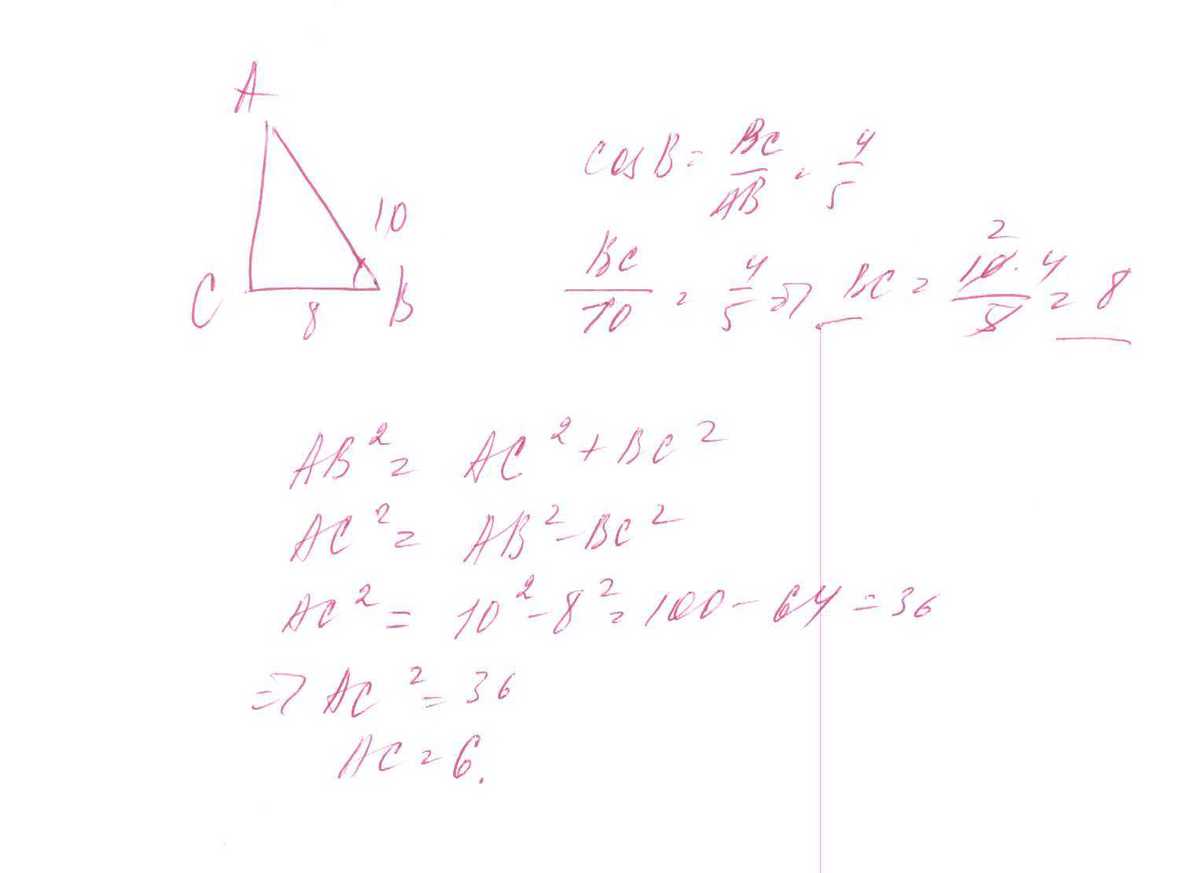 A
10
C
8
B
cos B = BC/AB = 4/5
BC/10 = 4/5 ⇒ BC = 10·4/5 = 8
2
AB² = AC² + BC²
AC² = AB² - BC²
AC² = 10² - 8² = 100 - 64 = 36
⇒ AC² = 36
AC = 6.